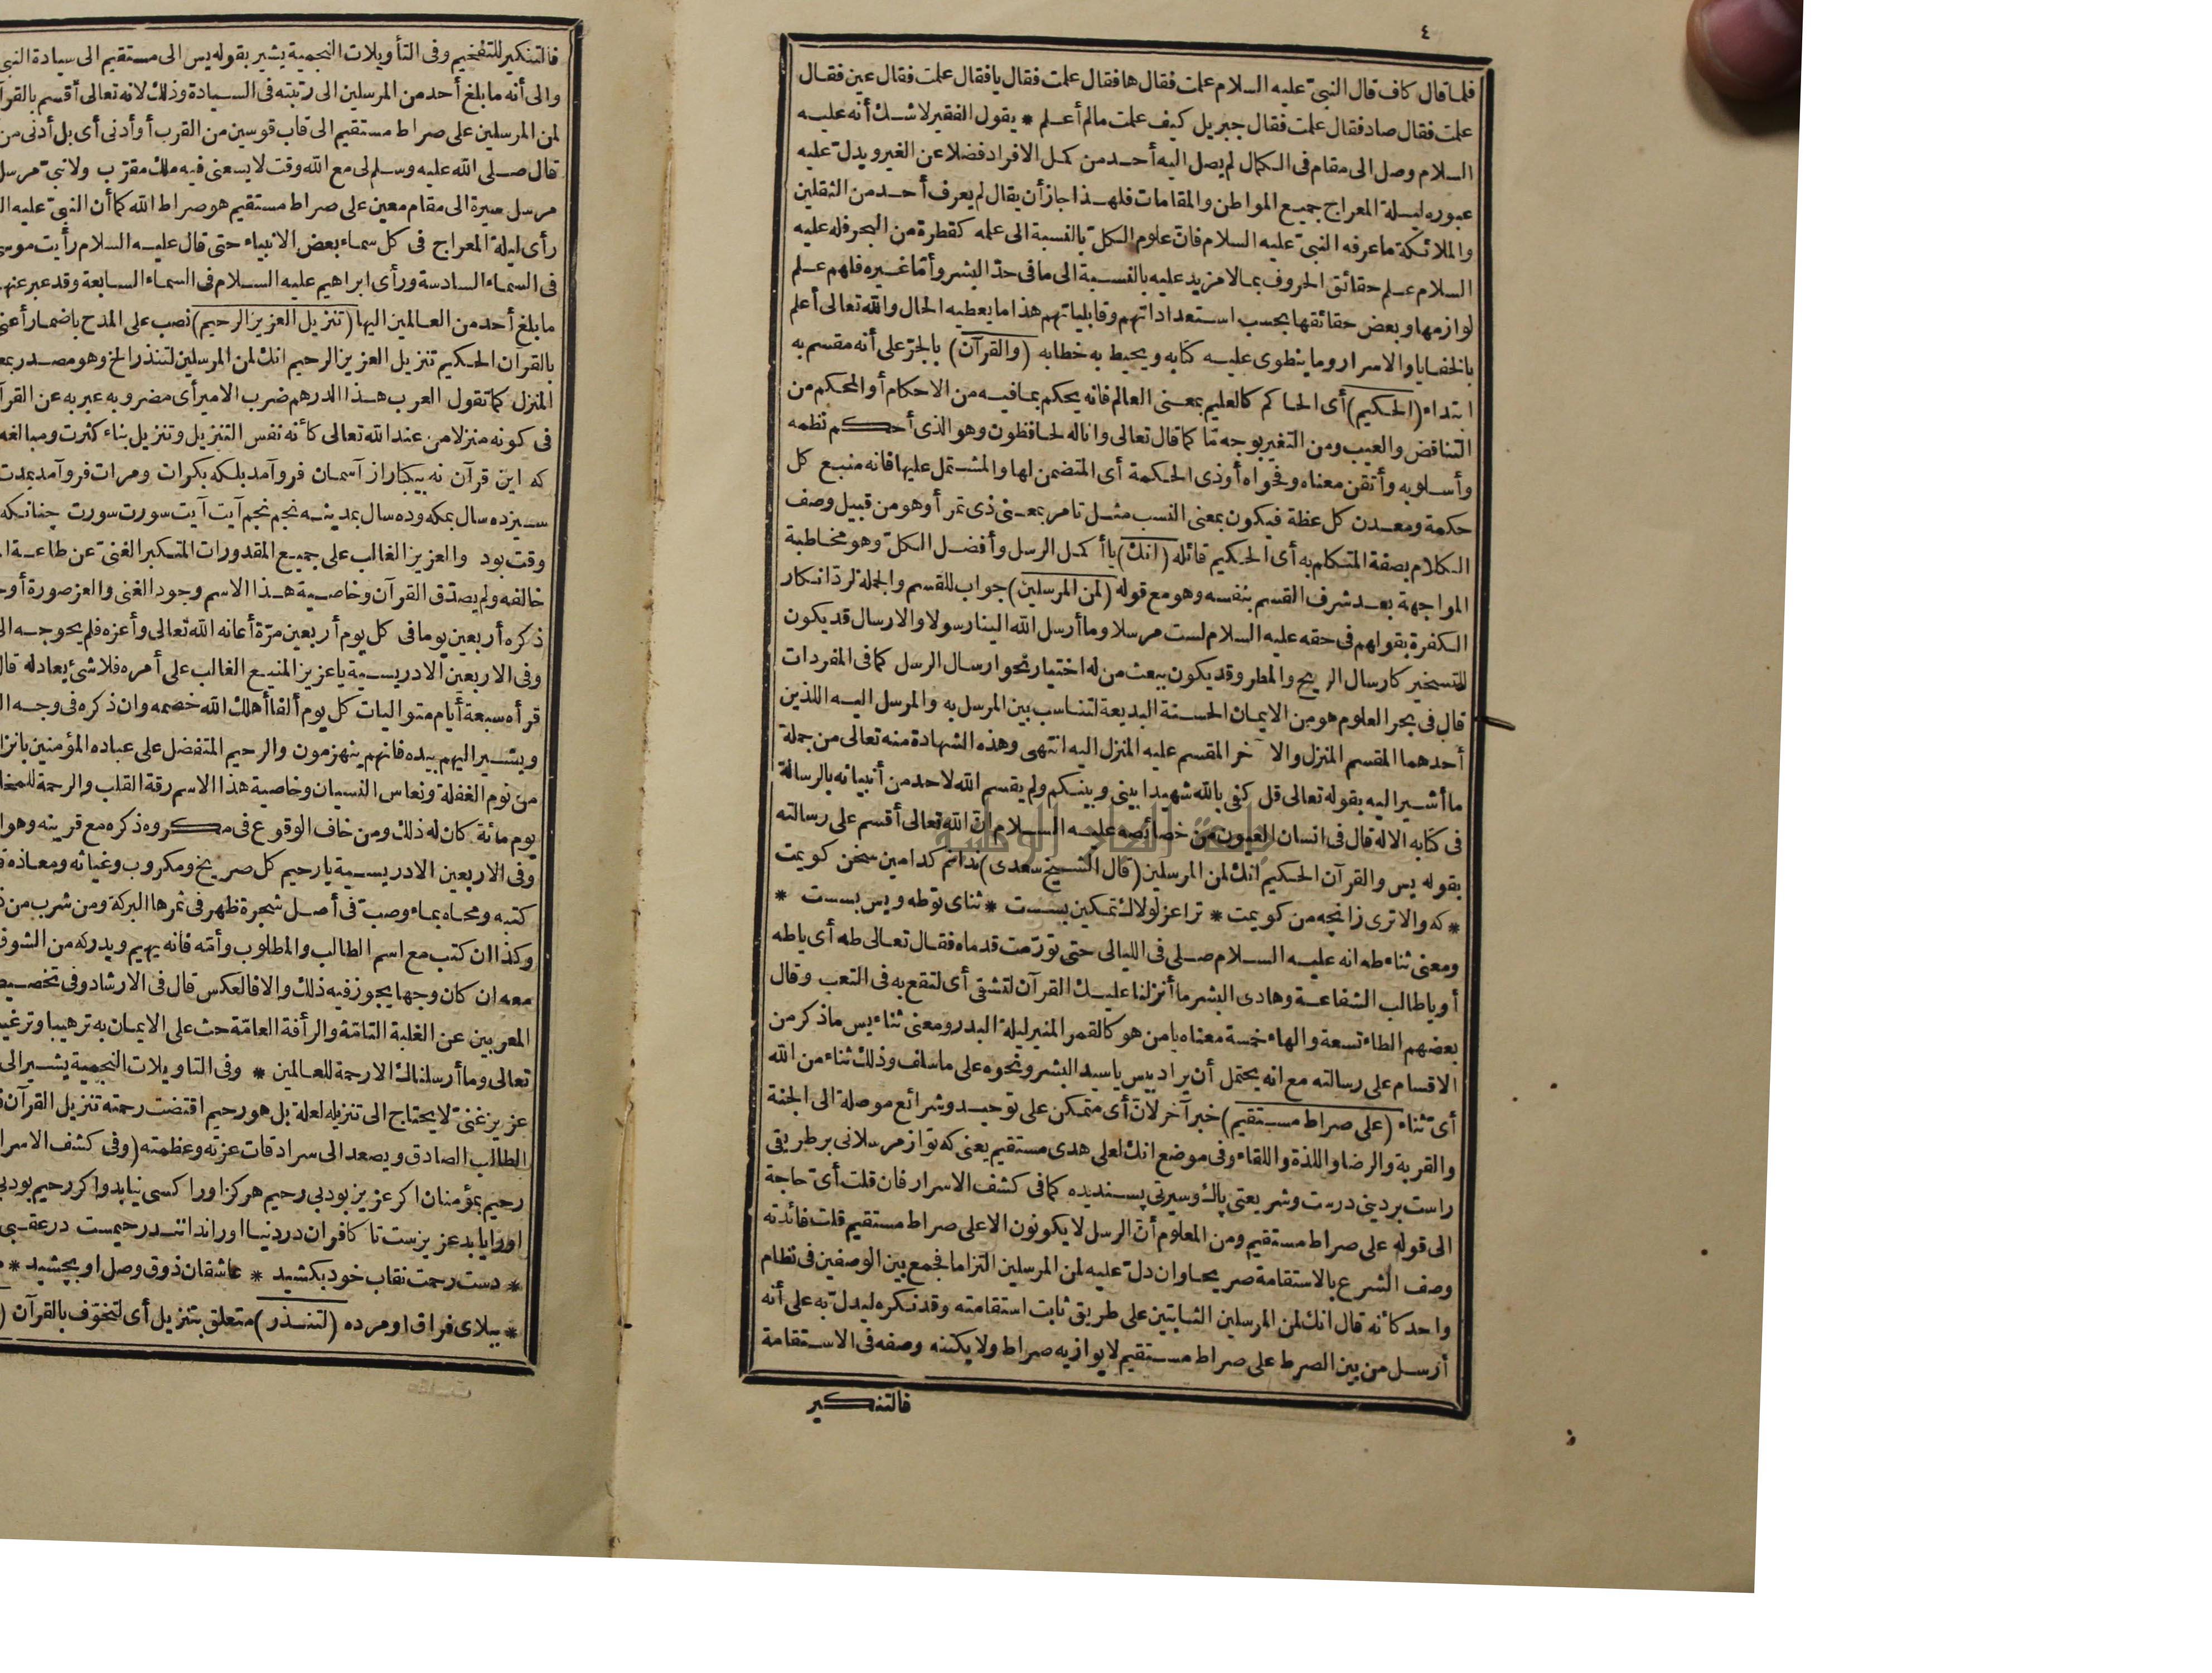 ٤
فلما قال كاف قال النبىّ عليه السلام علمت فقال ها فقال علمت فقال يا فقال علمت فقال عين فقال
علمت فقال صاد فقال علمت فقال جبريل كيف علمت مالم أعلم * يقول الفقير لاشك أنه عليه
السلام وصل الى مقام فى الكمال لم يصل اليه أحد من كمل الافراد فضلا عن الغير ويدل عليه
عبوره ليلة المعراج جميع المواطن والمقامات فلهذا جاز أن يقال لم يعرف أحد من الثقلين
والملائكة ما عرفه النبىّ عليه السلام فان علوم الكلّ بالنسبة الى علمه كقطرة من البحر فله عليه
السلام علم حقائق الحروف بما لامزيد عليه بالنسبة الى ما فى حدّ البشر وأمّا غيره فلهم علم
لوازمها وبعض حقائقها بحسب استعداداتهم وقابلياتهم هذا ما يعطيه الحال والله تعالى أعلم
بالخفايا والاسرار وما ينطوى عليه كتابه ويحيط به خطابه (والقرآن) بالجرّ على أنه مقسم به
ابتداء (الحكيم) أى الحاكم كالعليم بمعنى العالم فانه يحكم بما فيه من الاحكام أو المحكم من
التناقض والعيب ومن التغير بوجه مّا كما قال تعالى وانا له لحافظون وهو الذى أحكم نظمه
وأسلوبه وأتقن معناه وفحواه أو ذى الحكمة أى المتضمن لها والمشتمل عليها فانه منبع كل
حكمة ومعدن كل عظة فيكون بمعنى النسب مثل تامر بمعنى ذى تمر أو هو من قبيل وصف
الكلام بصفة المتكلم به أى الحكيم قائله (انك) يا أكمل الرسل وأفضل الكلّ وهو مخاطبة
المواجهة بعد شرف القسم بنفسه وهو مع قوله (لمن المرسلين) جواب للقسم والجملة لردّ انكار
الكفرة بقولهم فى حقه عليه السلام لست مرسلا وما أرسل الله الينا رسولا والارسال قد يكون
للتسخير كارسال الريح والمطر وقد يكون ببعث من له اختيار نحو ارسال الرسل كما فى المفردات
قال فى بحر العلوم هو من الايمان الحسنة البديعة لتناسب بين المرسل به والمرسل اليه اللذين
أحدهما المقسم المنزل والآخر المقسم عليه المنزل اليه انتهى وهذه الشهادة منه تعالى من جملة
ما أشير اليه بقوله تعالى قل كفى بالله شهيدا بينى وبينكم ولم يقسم الله لاحد من أنبيائه بالرسالة
فى كتابه الا له قال فى انسان العيون من خصائصه عليه السلام ان الله تعالى أقسم على رسالته
بقوله يس والقرآن الحكيم انك لمن المرسلين (قال الشيخ سعدى) ندانم كدامين سخن كويمت
* كه والاترى زانچه من كويمت * ترا عز لولاك تمكين بست * ثناى تو طه ويس بست *
ومعنى ثناء طه انه عليه السلام صلى فى الليالى حتى تورّمت قدماه فقال تعالى طه أى ياطه
أو ياطالب الشفاعة وهادى البشر ما أنزلنا عليك القرآن لتشقى أى لتقع به فى التعب وقال
بعضهم الطاء تسعة والهاء خمسة معناه يامن هو كالقمر المنير ليلة البدر ومعنى ثناء يس ماذكر من
الاقسام على رسالته مع انه يحتمل أن يراد بيس ياسيد البشر ونحوه على ماسلف وذلك ثناء من الله
أىّ ثناء (على صراط مستقيم) خبر آخر لانّ أى متمكن على توحيد وشرائع موصلة الى الجنة
والقربة والرضا واللذة واللقاء وفى موضع انك لعلى هدى مستقيم يعنى كه تو از مرسلانى بر طريقى
راست بر دينى درست وشريعتى پاك وسيرتى پسنديده كما فى كشف الاسرار فان قلت أىّ حاجة
الى قوله على صراط مستقيم ومن المعلوم أن الرسل لا يكونون الا على صراط مستقيم قلت فائدته
وصف الشرع بالاستقامة صريحا وان دلّ عليه لمن المرسلين التزاما فجمع بين الوصفين فى نظام
واحد كأنه قال انك لمن المرسلين الثابتين على طريق ثابت استقامته وقد نكره ليدلّ به على أنه
أرسل من بين الصرط على صراط مستقيم لا يوازيه صراط ولا يكتنه وصفه فى الاستقامة
فالتنكير
فالتنكير للتفخيم وفى التأويلات النجمية يشير بقوله يس الى مستقيم الى سيادة النبى
والى أنه ما بلغ أحد من المرسلين الى رتبته فى السيادة وذلك لانه تعالى أقسم بالقرآ
لمن المرسلين على صراط مستقيم الى قاب قوسين من القرب أو أدنى أى بل أدنى من
قال صلى الله عليه وسلم لى مع الله وقت لا يسعنى فيه ملك مقرّب ولا نبىّ مرسل
مرسل سيرة الى مقام معين على صراط مستقيم هو صراط الله كما أن النبىّ عليه
رأى ليلة المعراج فى كل سماء بعض الانبياء حتى قال عليه السلام رأيت موسى
فى السماء السادسة ورأى ابراهيم عليه السلام فى السماء السابعة وقد عبر عنهم
ما بلغ أحد من العالمين اليها (تنزيل العزيز الرحيم) نصب على المدح باضمار أعنى
بالقران الحكيم تنزيل العزيز الرحيم انك لمن المرسلين لتنذر الخ وهو مصدر بمع
المنزل كما تقول العرب هذا الدرهم ضرب الامير أى مضروبه عبر به عن القرآ
فى كونه منزلا من عند الله تعالى كأنه نفس التنزيل وتنزيل بناء كثرت ومبالغه
كه اين قرآن نه بيكبار از آسمان فرو آمد بلكه بكرات ومرات فرو آمد بمدت
سيزده سال بمكه وده سال بمدينه نجم نجم آيت آيت سورت سورت چنانكه
وقت بود والعزيز الغالب على جميع المقدورات المتكبر الغنىّ عن طاعة
خالفه ولم يصدّق القرآن وخاصية هذا الاسم وجود الغنى والعز صورة أو
ذكره أربعين يوما فى كل يوم أربعين مرّة أعانه الله تعالى وأعزه فلم يحوجه الى
وفى الاربعين الادريسية ياعزيز المنيع الغالب على أمره فلا شئ يعادله قال
قرأه سبعة أيام متواليات كل يوم ألفا أهلك الله خصمه وان ذكره فى وجه
ويشير اليهم بيده فانهم ينهزمون والرحيم المتفضل على عباده المؤمنين بانزا
من نوم الغفلة ونعاس النسيان وخاصية هذا الاسم رقة القلب والرحمة للمخلو
يوم مائة كان له ذلك ومن خاف الوقوع فى مكروه ذكره مع قرينه وهو
وفى الاربعين الادريسية يارحيم كل صريخ ومكروب وغياثه ومعاذه
كتبه ومحاه بماء وصبّ فى أصل شجرة ظهر فى ثمرها البركة ومن شرب من
وكذا ان كتب مع اسم الطالب والمطلوب وأمّه فانه يهيم ويدركه من الشوق
معه ان كان وجها يجوز فيه ذلك والا فالعكس قال فى الارشاد وفى تخصيص
المعربين عن الغلبة التامّة والرأفة العامّة حث على الايمان به ترهيبا وترغيب
تعالى وما أرسلناك الا رحمة للعالمين * وفى التاويلات النجمية يشير الى
عزيز غنىّ لا يحتاج الى تنزيله لعلة بل هو رحيم اقتضت رحمته تنزيل القرآن
الطالب الصادق ويصعد الى سرادقات عزته وعظمته (وفى كشف الاسرار
رحيم بمؤمنان اكر عزيز بود بى رحيم هركز اورا كسى نيابد واكر رحيم بود بى
اورا يابد عزيزست تا كافران در دنيا اورا ندانند رحيمست در عقبى
* دست رحمت نقاب خود بكشيد * عاشقان ذوق وصل او بچشيد *
* بيلاى فراق او مرده (لتنذر) متعلق بتنزيل أى لتخوّف بالقرآن (